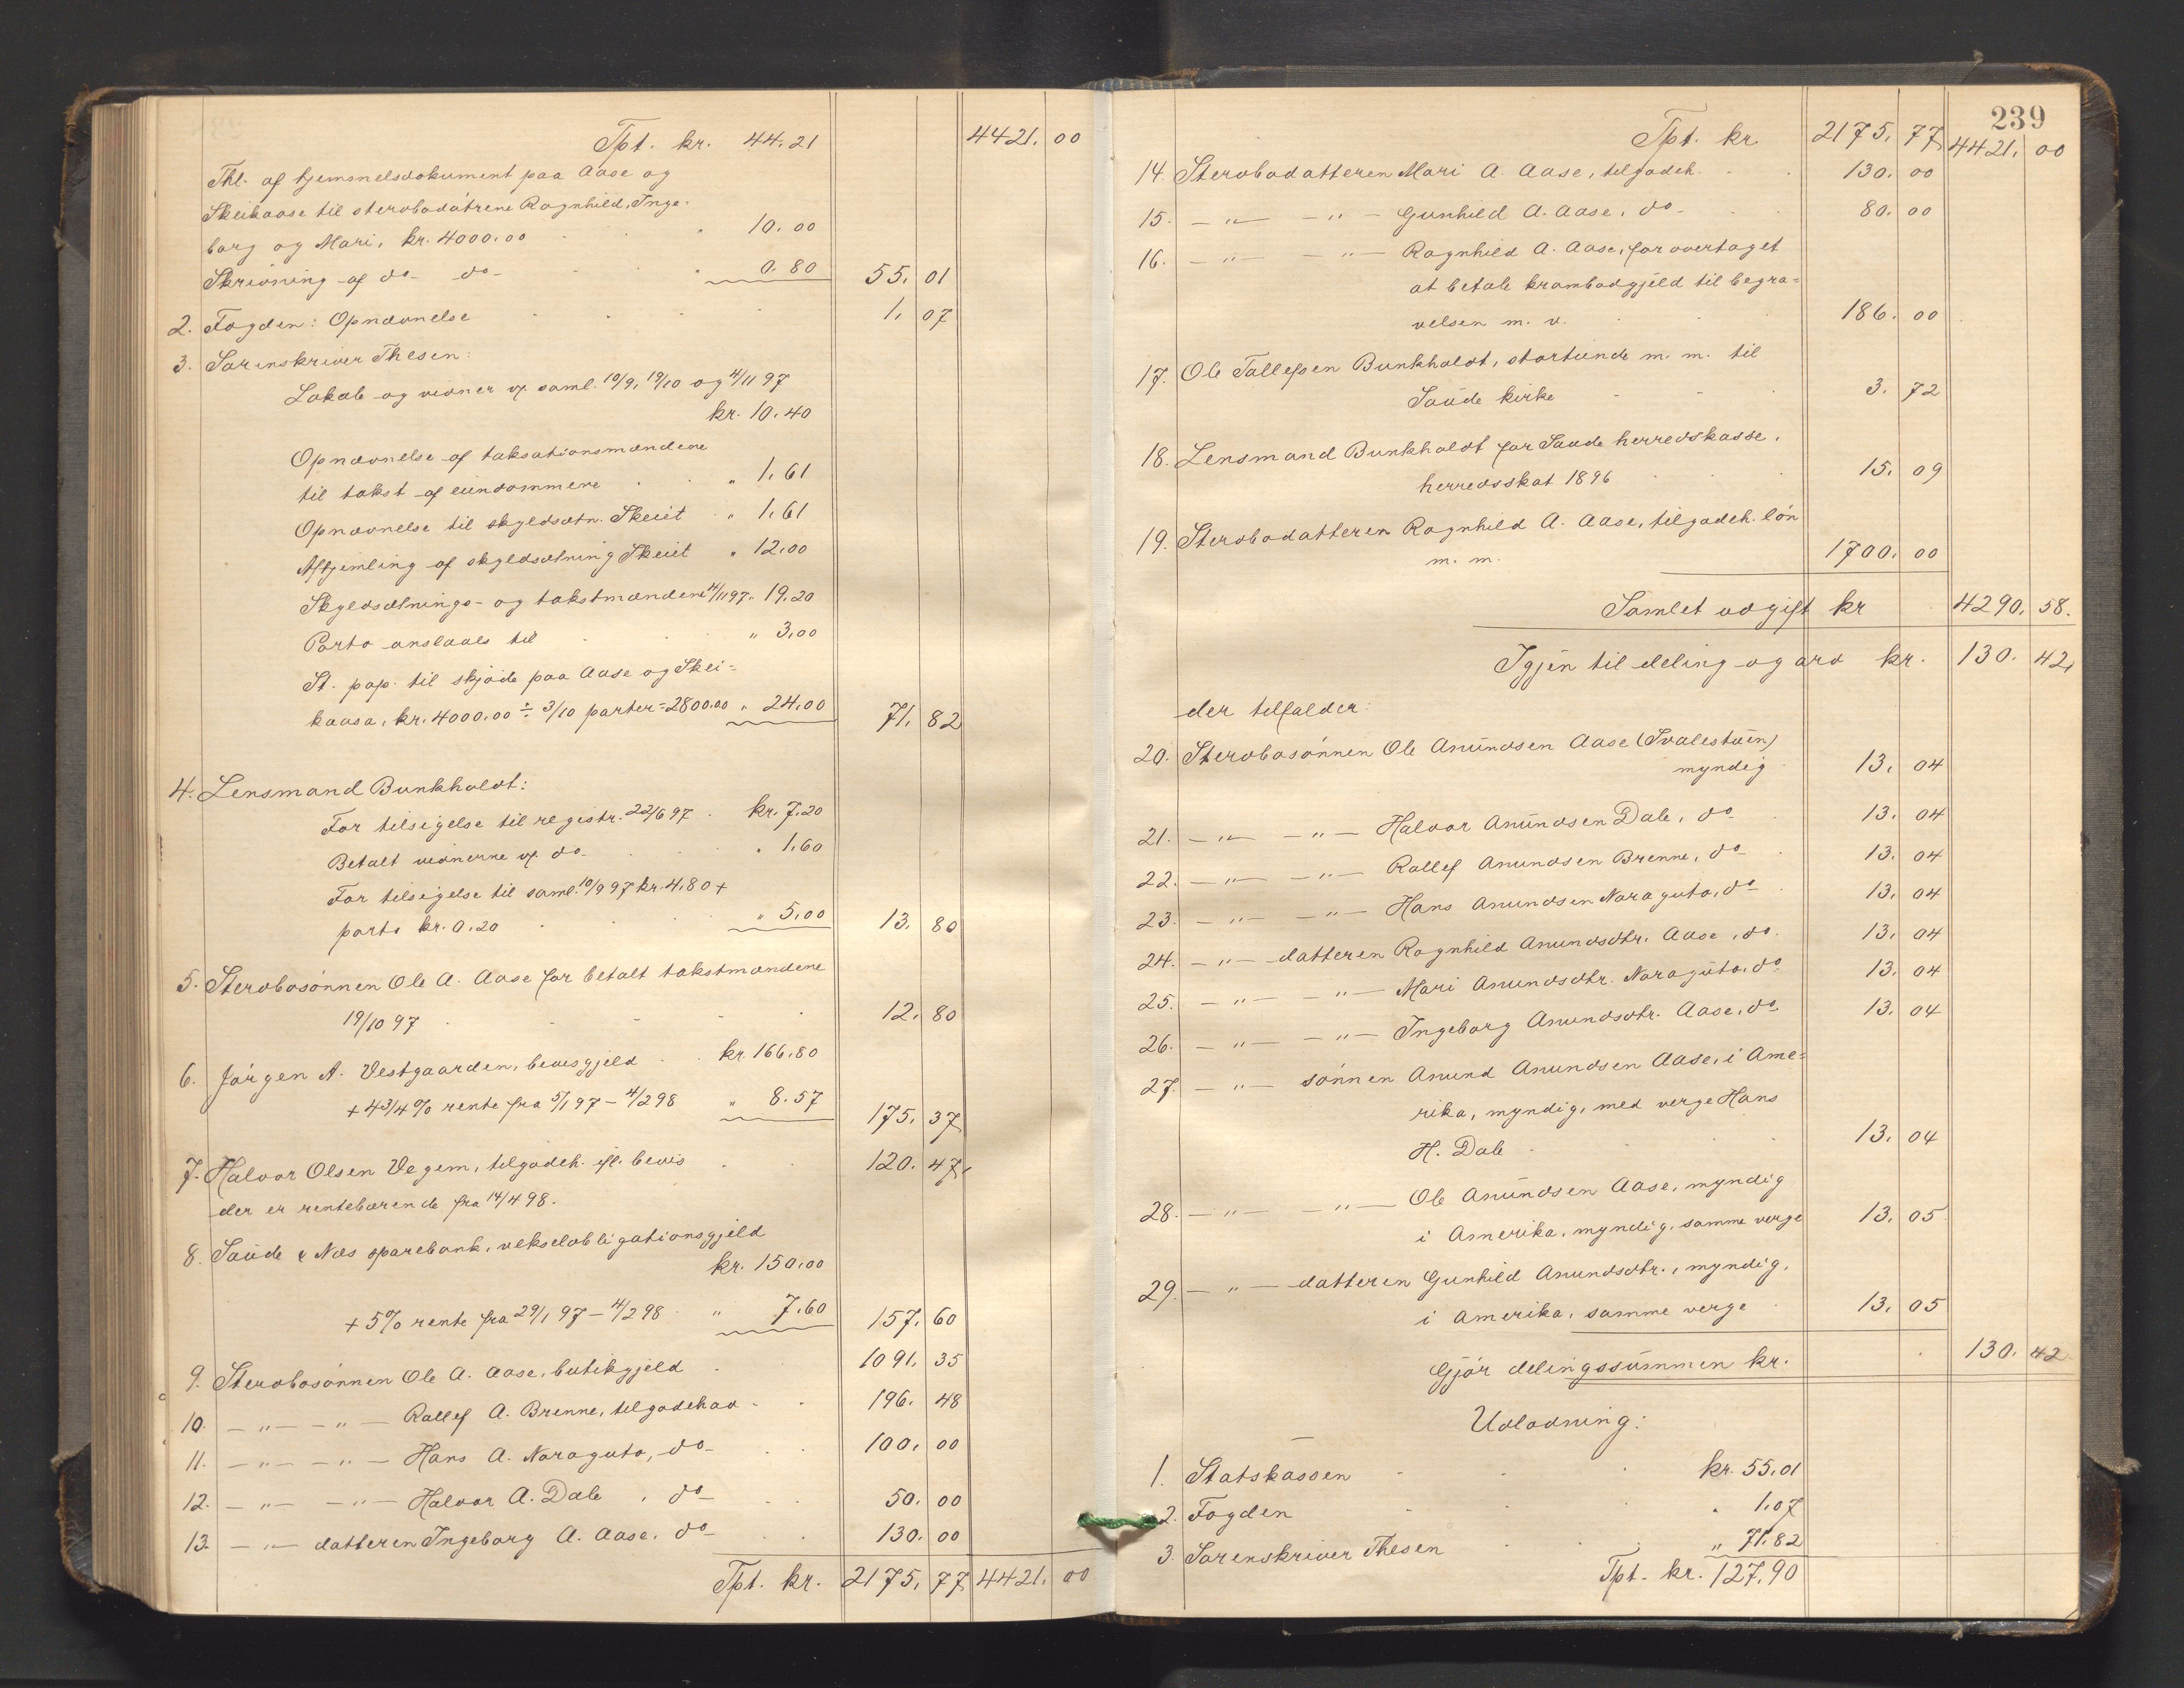 Tpt. kr. 44.21 4421. 00
Thl. af hjemmelsdokument paa Aase og
Skeikaase til sterbodøtrene Ragnhild, Inge-
borg og Mari, kr. 4000.00 . . " 10.00
Skrivning af do do . . " 0.80 55. 01
2. Fogden: Opnævnelse . . . . 1. 07
3. Sorenskriver Thesen:
Lokale og vidner v. saml. 10/9, 19/10 og 4/11 97
kr. 10.40
Opnævnelse af taksationsmændene
til takst af eiendommene . . " 1.61
Opnævnelse til skyldsætn. Skeiet . " 1.61
Afhjemling af skyldsætning Skeiet " 12.00
Skyldsætnings- og takstmændene 4/11 97 " 19.20
Porto anslaaes til . . . " 3.00
St. pap. til skjøde paa Aase og Skei-
kaasa, kr. 4000.00 ÷ 3/10 parter = 2800.00 " 24.00 71. 82
4. Lensmand Bunkholdt:
For tilsigelse til registr. 22/6 97 . kr. 7.20
Betalt vidnerne v. do . . . " 1.60
For tilsigelse til saml. 10/9 97 kr. 4.80 +
porto kr. 0.20 . . . " 5.00 13. 80
5. Stervbosønnen Ole A. Aase for betalt takstmændene
19/10 97 . . . . 12. 80
6. Jørgen A. Vestgaarden, bevisgjeld . . kr. 166.80
+ 4 3/4 % rente fra 5/1 97 – 4/2 98 " 8.57 175. 37
7. Halvor Olsen Vegem, tilgodeh. ifl. bevis . . 120. 47
der er rentebærende fra 14/4 98.
8. Saude & Næs sparebank, vekselobligationsgjeld
kr. 150.00
+ 5 % rente fra 29/1 97 – 4/2 98 " 7.60 157. 60
9. Stervbosønnen Ole A. Aase, butikgjeld . 1091. 35
10. – " – – " – Rollef A. Brenne, tilgodehav . . 196. 48
11. – " – – " – Hans A. Noraguta, do . . 100. 00
12. – " – – " – Halvor A. Dale , do . . 50. 00
13. – " – datteren Ingeborg A. Aase, do . . 130. 00
Tpt. kr. 2175. 77 4421. 00
239
Tpt. kr 2175. 77 4421. 00
14. Stervbodatteren Mari A. Aase, tilgodeh. . . 130. 00
15. – " – – " – Gunhild A. Aase, do . . 80. 00
16. – " – – " – Ragnhild A. Aase, for overtaget
at betale krambodgjeld til begra-
velsen m. v. . . 186. 00
17. Ole Tollefsen Bunkholdt, stortiende m. m. til
Saude kirke . . . 3. 72
18. Lensmand Bunkholdt for Saude herredskasse,
herredsskat 1896 . . 15. 09
19. Stervbodatteren Ragnhild A. Aase, tilgodeh. løn
m. m. 1700. 00
Samlet udgift kr 4290. 58.
Igjen til deling og arv kr. 130. 42
der tilfalder:
20. Stervbosønnen Ole Anundsen Aase (Svalestuen)
myndig . 13. 04
21. – " – – " – Halvor Anundsen Dale, do . 13. 04
22. – " – – " – Rollef Anundsen Brenne, do . 13. 04
23. – " – – " – Hans Anundsen Noraguta, do . 13. 04
24. – " – datteren Ragnhild Anundsdtr. Aase, do . 13. 04
25. – " – – " – Mari Anundsdtr. Noraguta, do 13. 04
26. – " – – " – Ingeborg Anundsdtr. Aase, do 13. 04
27. – " – sønnen Anund Anundsen Aase, i Ame-
rika, myndig, med verge Hans
H. Dale . . . 13. 04
28. – " – – " – Ole Anundsen Aase, myndig
i Amerika, myndig, samme verge 13. 05
29. – " – datteren Gunhild Anundsdtr., myndig,
i Amerika, samme verge . 13. 05
Gjør delingssummen kr. . 130. 42
Udlodning:
1. Statskassen . . . kr. 55.01
2. Fogden . . . " 1.07
3. Sorenskriver Thesen . . . " 71.82
Tpt. kr. 127.90